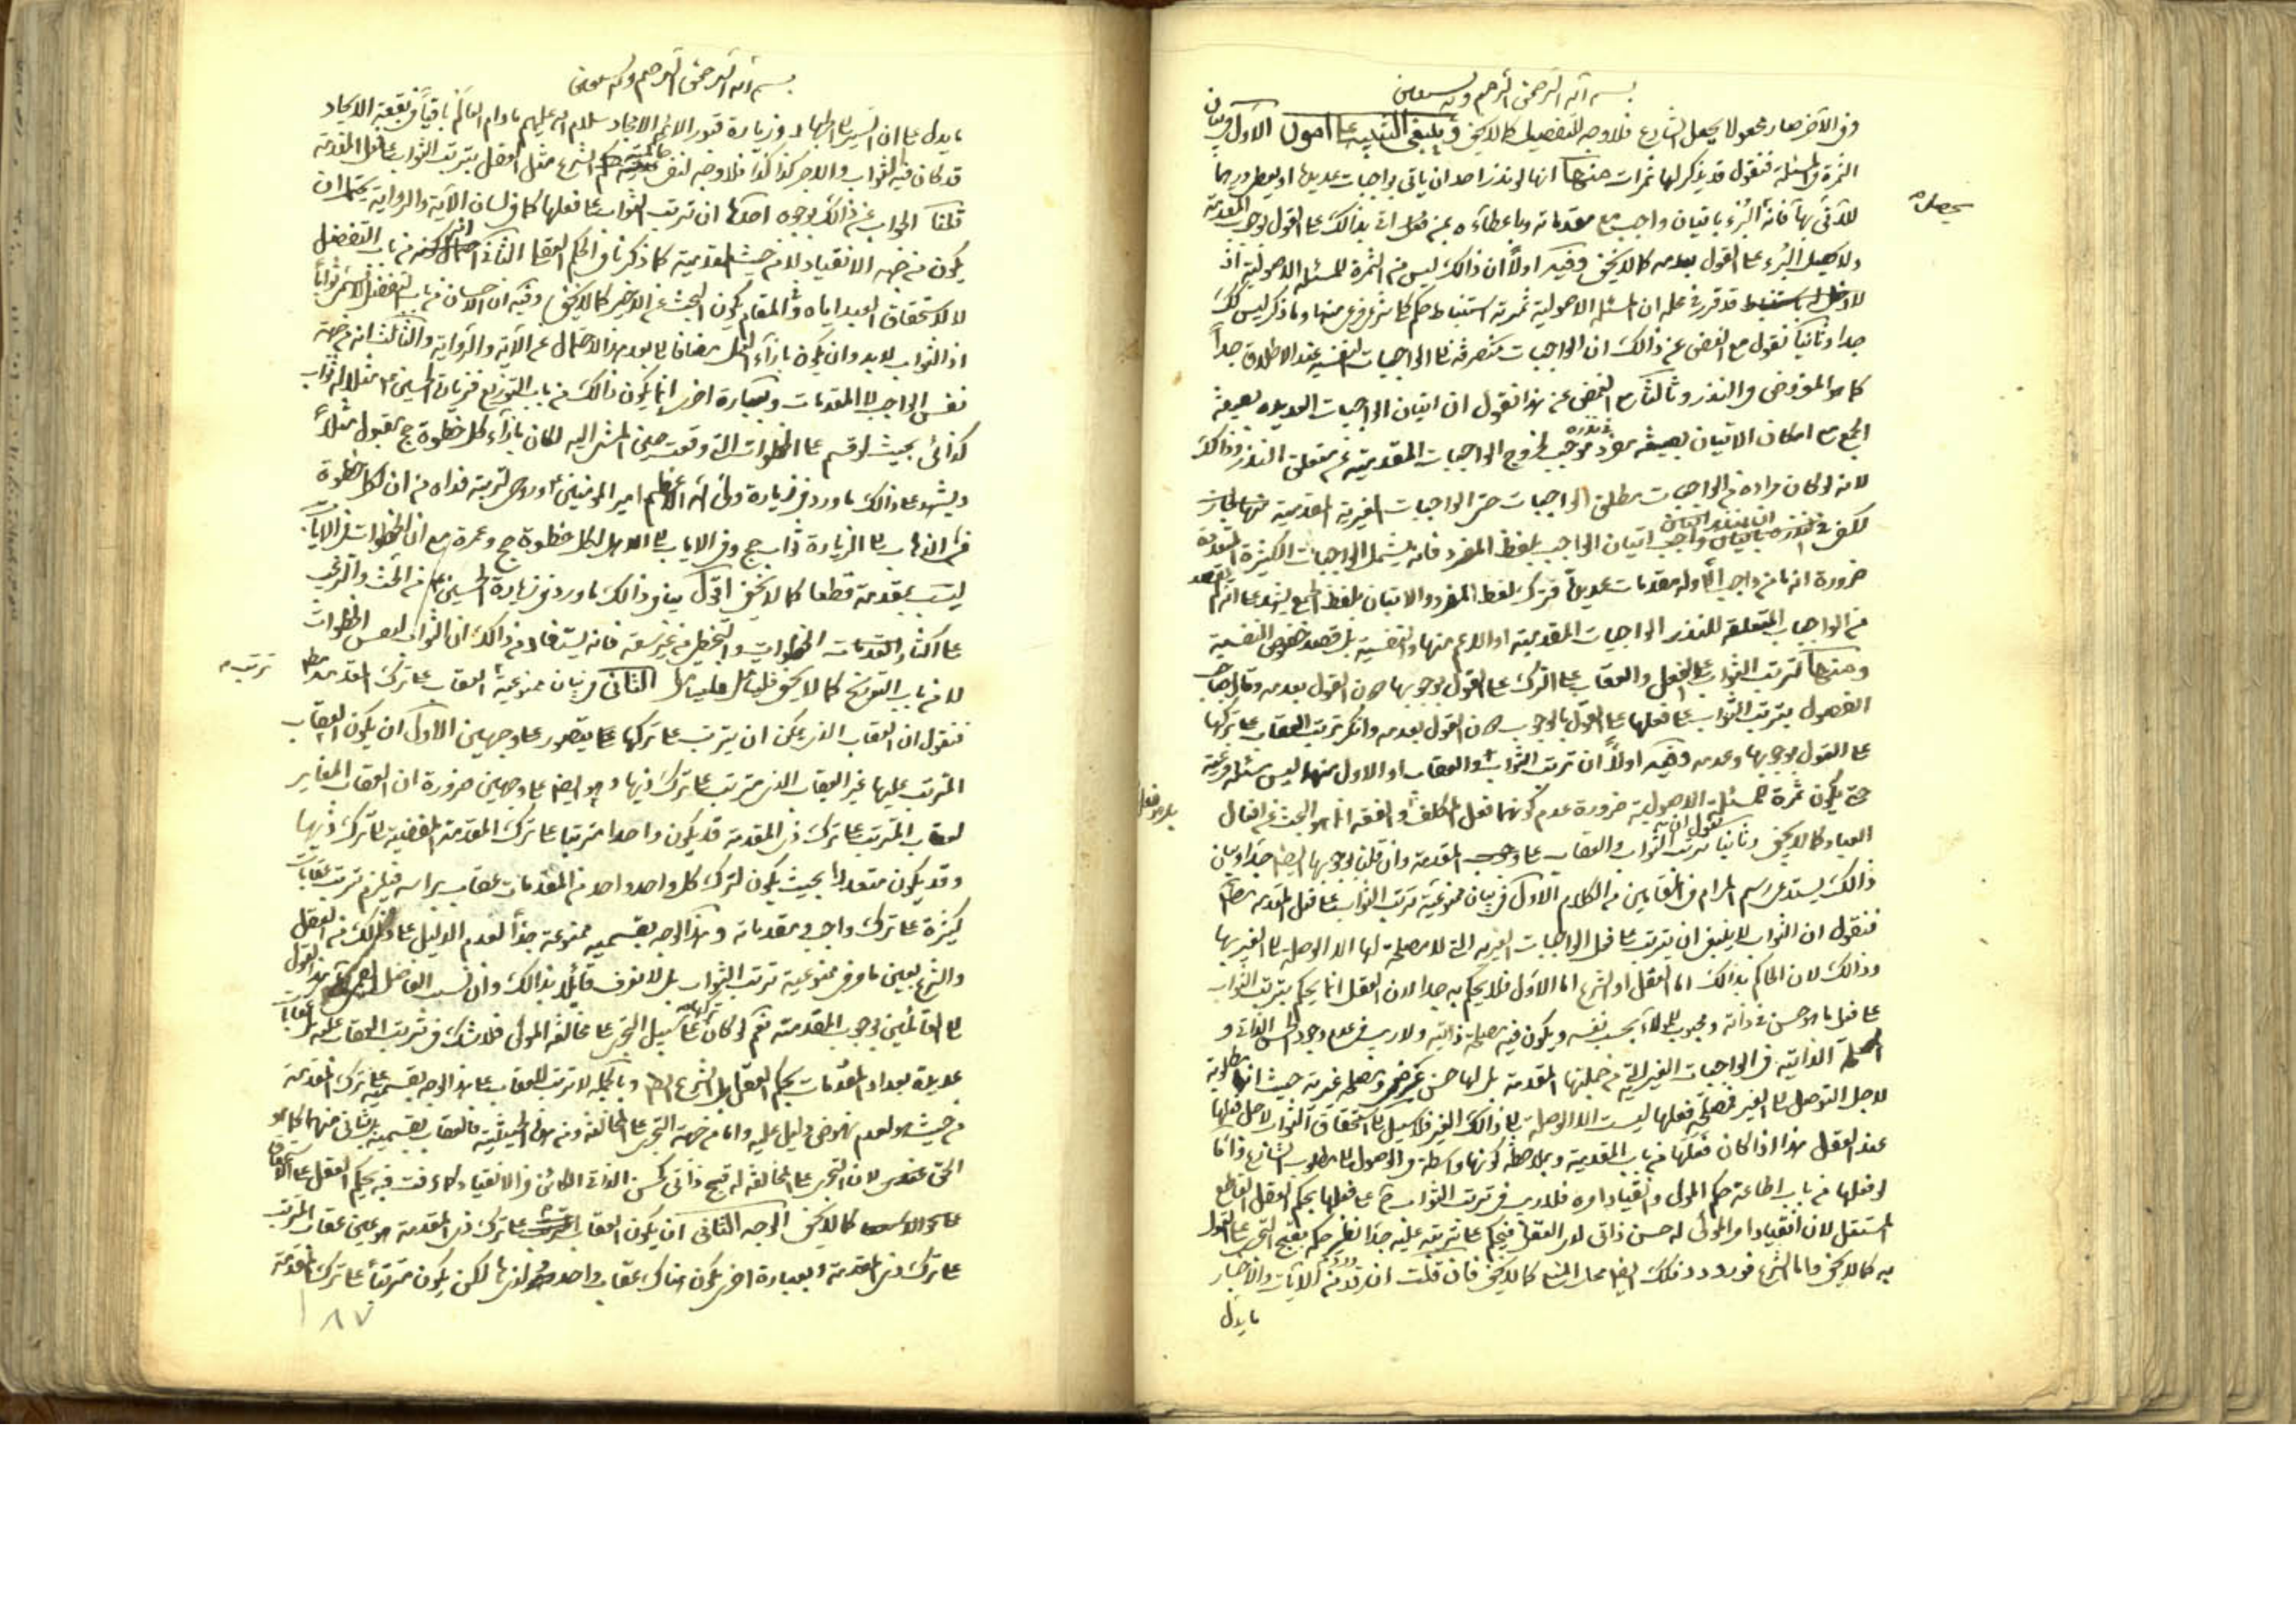 بسم الله الرحمن الرحيم وبه نستعين
وفى الآخر صار مجعولا بجعل الشارع فلا وجه للتفصيل كما لا يخفى وينبغى التنبيه على امور الاول فى بيان
الثمرة فى المسئلة فنقول قد يذكر لها ثمرات منها انها لو نذر احد ان ياتى بواجبات عديدة او يعطى درهما
للآتى بها فانه البرء باتيان واجب مع مقدماته وباعطاءه من فعل اتى بذالك على القول بوجوب المقدمة
ولا يحصل البرء على القول بعدمه كما لا يخفى وفيه اولا ان ذالك ليس من الثمرة للمسئلة الاصولية اذ
قد قرر فى محله ان المسئلة الاصولية ثمرته استنباط حكم كلى شرعى فرعى منها وما ذكر ليس كك
جدا وثانيا نقول مع الغض عن ذالك ان الواجبات منصرفة الى الواجبات النفسية عند الاطلاق جدا
كما هو المفروض فى النذر وثالثا مع الغض عن هذا نقول ان اتيان الواجبات العديدة بصيغة
الجمع مع امكان الاتيان بصيغة مفرد فى نذره موجب لخروج الواجبات المقدمية عن متعلق النذر وذالك
لانه لو كان مراده من الواجبات مطلق الواجبات حتى الواجبات الغيرية المقدمية
لكفى فى نذره ان ينذر اتيان الواجب بلفظ المفرد فانه يشمل الواجبات الكثيرة المتعددة
ضرورة انه ما من واجب الا وله مقدمات عديدة فترك لفظ المفرد والاتيان بلفظ الجمع يشهد على انه لم يقصد
من الواجبات المتعلقة للنذر الواجبات المقدمية او الاعم منها والنفسية بل قصد خصوص النفسية
ومنها ترتب الثواب على الفعل والعقاب على الترك على القول بوجوبها دون القول بعدمه وقال صاحب
الفصول بترتب الثواب على فعلها على القول بالوجوب دون القول بعدمه وانكر ترتب العقاب على تركها
على القول بوجوبها وعدمه وفيه اولا ان ترتب الثواب والعقاب او الاول منهما ليس مسئلة فرعية
حتى يكون ثمرة للمسئلة الاصولية ضرورة عدم كونهما فعل المكلف والفقه انما هو البحث عن افعال
العباد كما لا يخفى وثانيا نقول ان ترتب الثواب والعقاب على المقدمة وان قلنا بوجوبها ايضا جدا وبيان
ذالك يستدعى رسم المرام فى المقامين من الكلام الاول فى بيان ممنوعية ترتب الثواب على فعل المقدمة مطلقا
فنقول ان الثواب لا ينبغى ان يترتب على فعل الواجبات الغيرية التى لا مصلحة لها الا الوصلة الى الغير بها
وذالك لان الحاكم بذالك اما العقل او الشرع اما الاول فلا يحكم به جدا لان العقل انما يحكم بترتب الثواب
على فعل ما هو حسن فى ذاته ومحبوب للمولى بحسب نفسه ويكون فيه مصلحة ذاتية ولا ريب فى عدم وجود الحسن الذاتى و
المصلحة الذاتية فى الواجبات الغيرية التى من جملتها المقدمة بل لها حسن عرضى ومصلحة غيرية حيث انها مطلوبة
لاجل التوصل الى الغير فمصلحة فعلها ليست الا الوصلة الى ذالك الغير فلا سبيل الى استحقاق الثواب لاجل فعلها
عند العقل هذا اذا كان فعلها من باب المقدمية وبملاحظة كونها واسطة فى الوصول الى مطلوب الشارع واما
لو فعلها من باب اطاعة حكم المولى وانقياد امره فلا ريب فى ترتب الثواب ح على فعلها بحكم العقل القاطع
المستقل لان انقياد امر المولى له حسن ذاتى لدى العقل فيحكم على ترتبه عليه جدا نظير حكمه بقبح التجرى على القول
به كما لا يخفى واما الشرع فورود ذلك ايضا محل المنع كما لا يخفى فان قلت ان قد ورد من الآيات والاخبار
ما يدل
بسم الله الرحمن الرحيم وبه نستعين
ما يدل على ان السير الى الجهاد وزيارة قبور الائمة الامجاد سلام الله عليهم ما دام العالم باقيا فى بقعة الايجاد
قد كان فيه الثواب والاجر كذا كذا فلا وجه لنفى حاكمية الشرع مثل العقل بترتب الثواب على فعل المقدمة
قلنا الجواب عن ذالك بوجوه احدها ان ترتب الثواب على فعلها كما فى لسان الآية والرواية يحتمل ان
يكون من جهة الانقياد لا من حيث المقدمية كما ذكرنا فى الحكم العقلى الثانى انه من باب التفضل
لا لاستحقاق العبد اياه وفى المقام يكون البحث عن الاخير كما لا يخفى وفيه ان الاحسان من باب التفضل لا يسمى ثوابا
اذ الثواب لا بد وان يكون بازاء العمل مضافا الى بعد هذا الاحتمال عن الآية والرواية والثالث انه من جهة
نفس الواجب لا المقدمات وبعبارة اخرى انما يكون ذالك من باب التوزيع فزيارة الحسين ع مثلا له ثواب
كذائى بحيث لو قسم على الخطوات التى وقعت حين المشى اليه لكان بازاء كل خطوة حج مقبول مثلا
ويشهد على ذالك ما ورد فى زيارة ولى الله الاعظم امير المؤمنين ع وروحى لتربته فداه من ان لكل خطوة
فى الذهاب الى الزيارة ثواب حج وفى الاياب الى الاهل لكل خطوة حج وعمرة مع ان الخطوات فى الاياب
ليست بمقدمة قطعا كما لا يخفى اقول ينافى ذالك ما ورد فى زيارة الحسين ع من الحث والترغيب
على اكثار الخطوات والتخطى من غير سعة فانه يستفاد من ذالك ان الثواب لنفس الخطوات
لا من باب التوزيع كما لا يخفى فليتأمل الثانى فى بيان ممنوعية ترتب العقاب على ترك المقدمة مطلقا
فنقول ان العقاب الذى يمكن ان يترتب على تركها على يتصور على وجهين الاول ان يكون العقاب
المترتب عليها غير العقاب الذى مترتب على ترك ذيها وهو ايضا على وجهين ضرورة ان العقاب المغاير
لعقاب المترتب على ترك ذى المقدمة قد يكون واحدا مترتبا على ترك المقدمة المفضية الى ترك ذيها
وقد يكون متعددا بحيث يكون لترك كل واحد واحد من المقدمات عقاب براسه فيلزم ترتب عقابات
كثيرة على ترك واجب ومقدماته وهذا الوجه بقسميه ممنوعة جدا لعدم الدليل على ذالك من العقل
والشرع بعين ما مر فى ممنوعية ترتب الثواب بل لا نعرف قائلا بذالك وان نسب الفاضل هذا القول
الى القائلين بوجوب المقدمة نعم لو كان تركها على سبيل التجرى على مخالفة المولى فلا شك فى ترتب العقاب عليه عقابات
عديدة بعدد المقدمات بحكم العقل بل الشرع ايضا وبالجملة لا ترتب للعقاب على هذا الوجه بقسميه على ترك المقدمة
من حيث هو لعدم نهوض دليل عليه واما من جهة التجرى على المخالفة ومن هذه الحيثية فالعقاب بقسميه بل الثانى منهما كما هو
الحق عندى لان التجرى على المخالفة له قبح ذاتى كحسن الذاتى الكائن فى الانقياد كما عرفت فيه فيحكم العقل على استحقاق
كما لا يخفى الوجه الثانى ان يكون العقاب على ترك ذى المقدمة هو عين عقاب المترتب
على ترك ذى المقدمة وبعبارة اخرى يكون هناك عقاب واحد لذيها لكن يكون مترتبا على ترك المقدمة
١٨٧